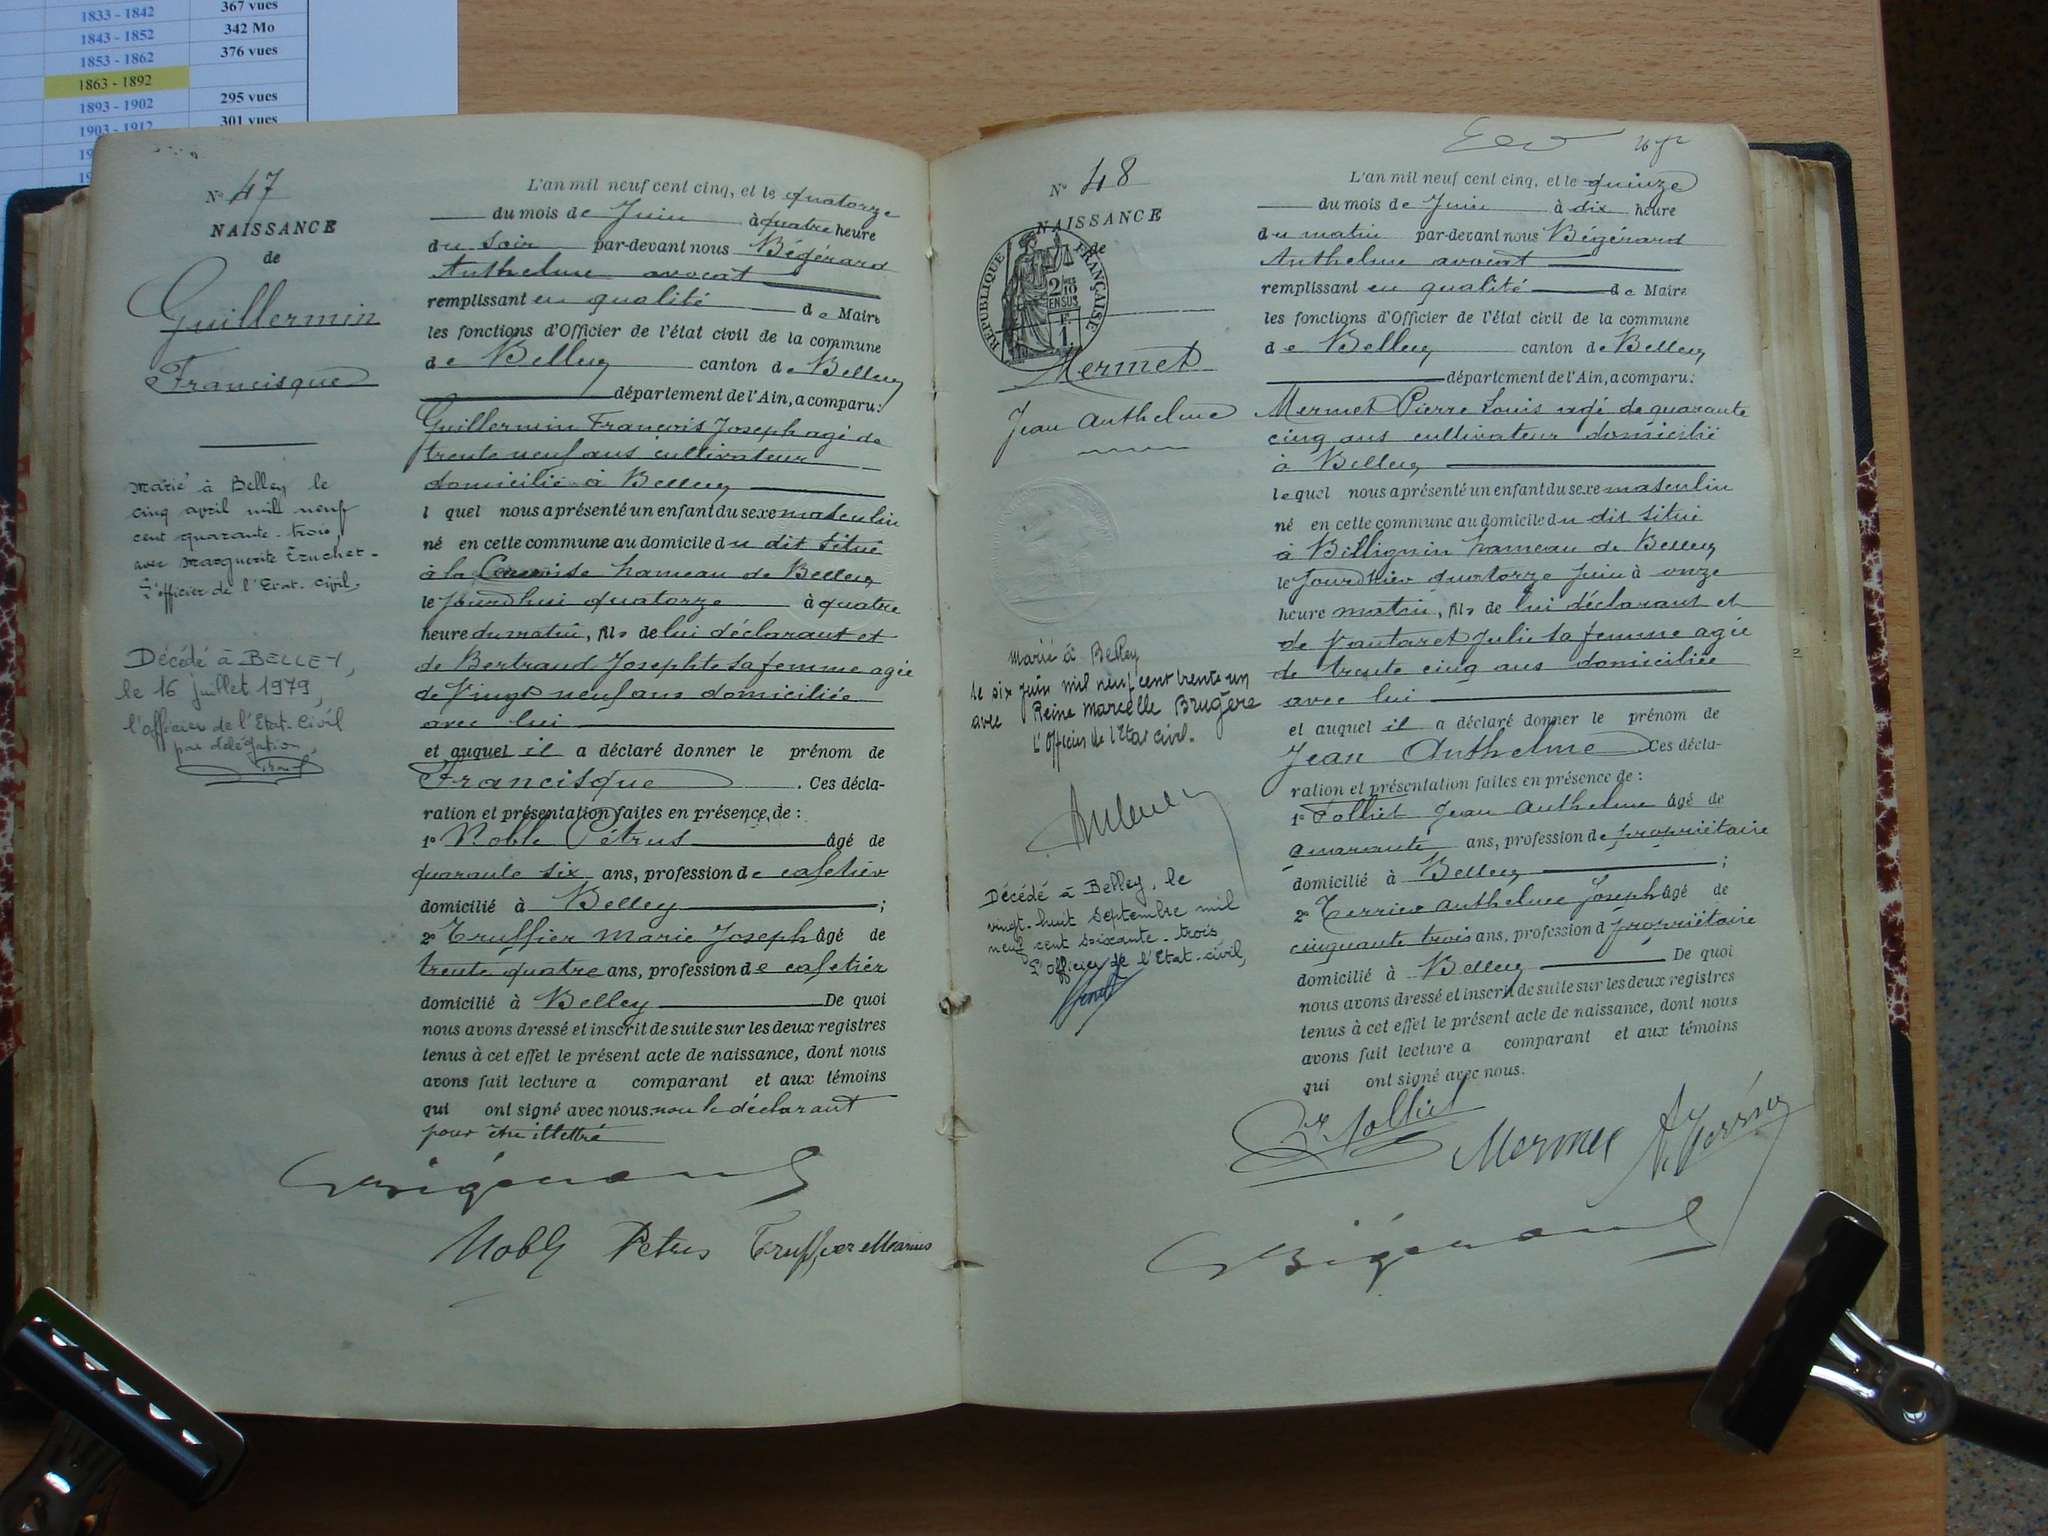 1833 - 1842 367 vues
1843 - 1852 342 Mo
1853 - 1862 376 vues
1863 - 1892
1893 - 1902 295 vues
1903 - 1912 301 vues
N° 47
NAISSANCE
de
Guillermin
Francisque
Marié à Belley le
cinq avril mil neuf
cent quarante-trois,
avec Marguerite Truchet-
L'officier de l'Etat-civil,
Décédé à BELLEY,
le 16 juillet 1979,
l'officier de l'Etat-Civil
par délégation,
L'an mil neuf cent cinq, et le quatorze
du mois de Juin à quatre heure
du soir par-devant nous Bégérard
Anthelme avocat
remplissant en qualité de Maire
les fonctions d'Officier de l'état civil de la commune
de Belley canton de Belley
département de l'Ain, a comparu:
Guillermin François Joseph agé de
trente neuf ans cultivateur
domicilié à Belley
l quel nous a présenté un enfant du sexe masculin
né en cette commune au domicile du dit situé
à la hameau de Belley
le jourdhui quatorze à quatre
heure du matin, fils de lui déclarant et
de Bertrand Josephte sa femme agée
de Vingt neuf ans domiciliée
avec lui
et auquel il a déclaré donner le prénom de
Francisque . Ces décla-
ration et présentation faites en présence de :
1° Noble Pétrus âgé de
quarante six ans, profession de cafetier
domicilié à Belley ;
2° Truffier Marie Joseph âgé de
trente quatre ans, profession de cafetier
domicilié à Belley De quoi
nous avons dressé et inscrit de suite sur les deux registres
tenus à cet effet le présent acte de naissance, dont nous
avons fait lecture a comparant et aux témoins
qui ont signé avec nous. non le déclarant
pour être illettré
Bégérard
Noble Petrus Truffier Marius
N° 48
NAISSANCE
de
REPUBLIQUE FRANÇAISE
2/10 EN SUS
F. 1
Mermet
Jean Anthelme
Marié à Belley
le six juin mil neuf cent trente un
avec Reine Marcelle Brugère
L'Officier de l'Etat civil.
Décédé à Belley, le
vingt-huit Septembre mil
neuf cent soixante-trois
L'officier de l'Etat-civil,
L'an mil neuf cent cinq, et le quinze
du mois de Juin à dix heure
du matin par-devant nous Bégérard
Anthelme avocat
remplissant en qualité de Maire
les fonctions d'Officier de l'état civil de la commune
de Belley canton de Belley
département de l'Ain, a comparu:
Mermet Pierre Louis agé de quarante
cinq ans cultivateur domicilié
à Belley
lequel nous a présenté un enfant du sexe masculin
né en cette commune au domicile du dit situé
à Billignin hameau de Belley
le jourdhier quatorze Juin à onze
heure matin, fils de lui déclarant et
de Vautaret Julie sa femme agée
de trente cinq ans domiciliée
avec lui
et auquel il a déclaré donner le prénom de
Jean Anthelme Ces décla-
ration et présentation faites en présence de :
1° Tolliet Jean Anthelme âgé de
quarante ans, profession de propriétaire
domicilié à Belley ;
2° Terrier Anthelme Joseph âgé de
cinquante trois ans, profession d propriétaire
domicilié à Belley De quoi
nous avons dressé et inscrit de suite sur les deux registres
tenus à cet effet le présent acte de naissance, dont nous
avons fait lecture a comparant et aux témoins
qui ont signé avec nous.
Tolliet Mermet
Bégérard